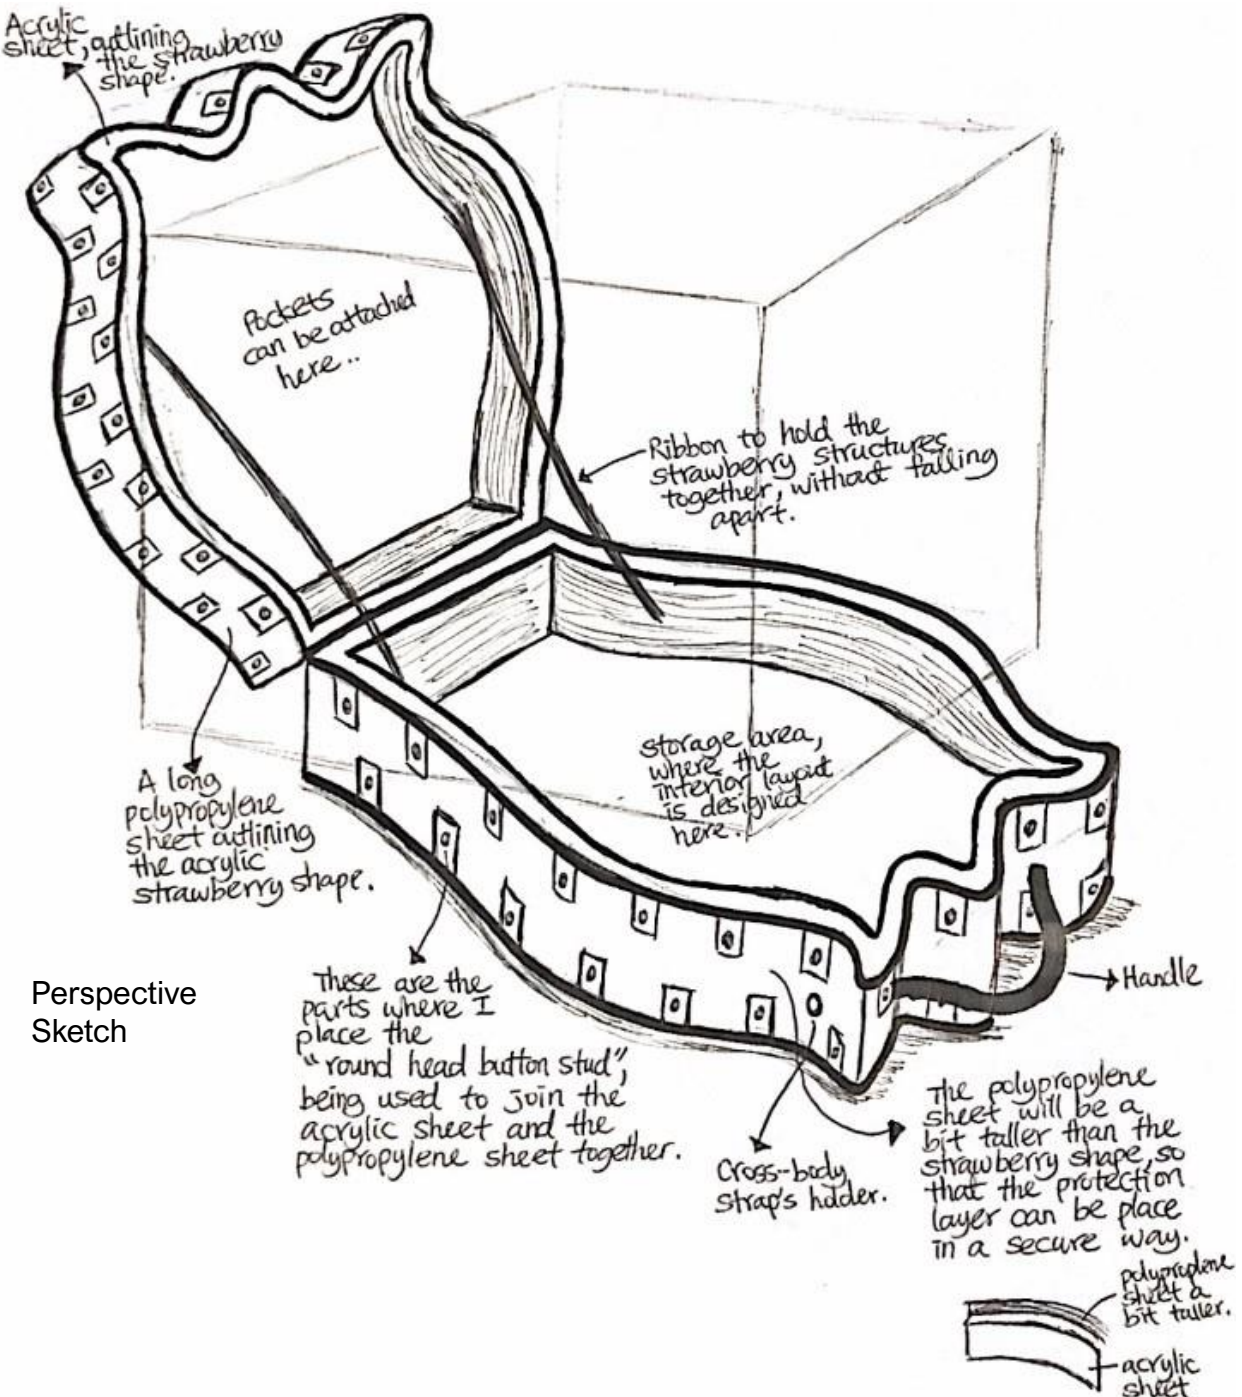 Acrylic
sheet, outlining
the strawberry
shape.
Pockets
can be attached
here..
Ribbon to hold the
strawberry structures
together, without falling
apart.
storage area,
where the
interior layout
is designed
here.
A long
polypropylene
sheet outlining
the acrylic
strawberry shape.
Perspective
Sketch
These are the
parts where I
place the
"round head button stud",
being used to join the
acrylic sheet and the
polypropylene sheet together.
Handle
Cross-body
Strap's holder.
The polypropylene
sheet will be a
bit taller than the
strawberry shape, so
that the protection
layer can be place
in a secure way.
polyproplene
sheet a
bit taller.
acrylic
sheet